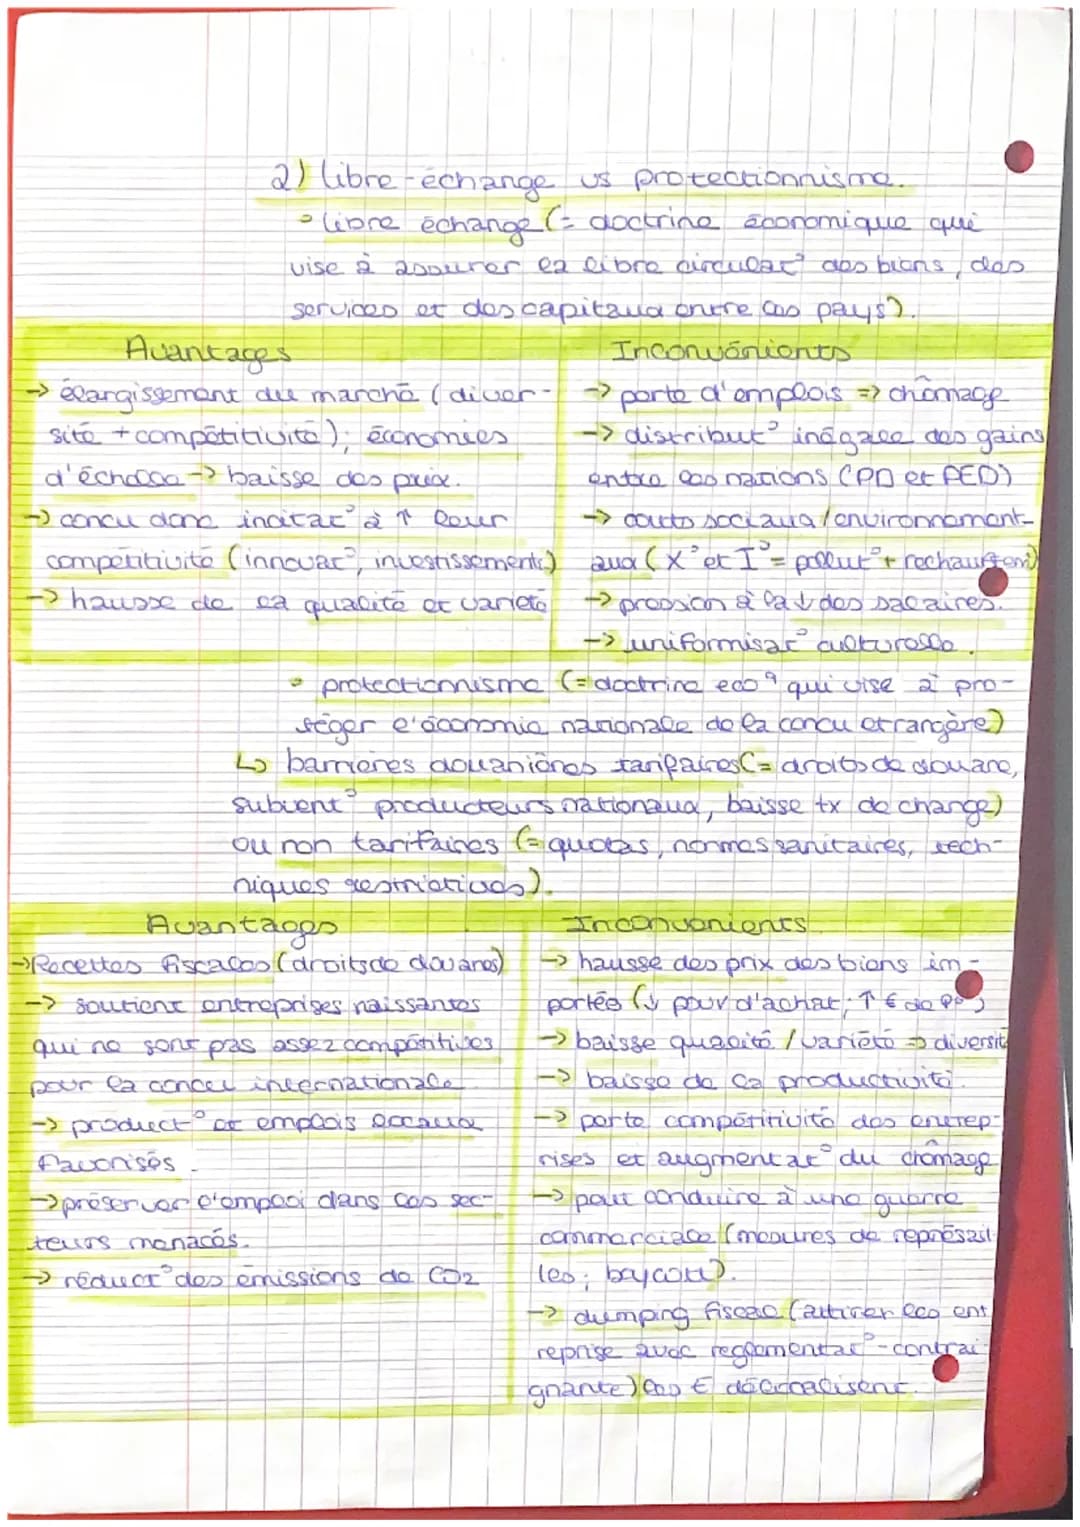 2) libre-échange vs protectionnisme.
• libre échange (= doctrine économique qui
vise à assurer la libre circulat° des biens, des
services et des capitaux entre les pays).
Avantages
→ élargissement du marché (diver-
sité + compétitivité); économies
d'échelle → baisse des prix.
→ concu donc incitat° à ↑ leur
compétitivité (innovat°, investissements)
→ hausse de la qualité et variété
Inconvénients
→ perte d'emplois => chômage
→ distribut° inégale des gains
entre les nations (PD et PED)
→ couts sociaux/environnement-
aux (X° et I° = pollut° + rechauffem)
→ pression à la ↓ des salaires.
→ uniformisat° culturelle.
• protectionnisme (= doctrine eco q qui vise à pro-
téger l'économie nationale de la concu etrangère)
↳ barrières douanières tarifaires (= droits de douane,
subvent° producteurs nationaux, baisse tx de change)
ou non tarifaires (= quotas, normes sanitaires, tech-
niques restrictives).
Avantages
→ Recettes fiscales (droits de douanes)
→ soutient entreprises naissantes
qui ne sont pas assez compétitives
pour la concu internationale
→ product° et emplois locaux
favorisés.
→ préserver l'emploi dans les sec-
teurs menacés.
→ réduct° des émissions de CO2
Inconvenients
→ hausse des prix des biens im-
portés (↓ pouv d'achat; ↑ € de
→ baisse qualité / variété => diversité
→ baisse de la productivité.
→ perte compétitivité des entrep-
rises et augmentat° du chômage
→ peut conduire à une guerre
commerciale (mesures de représail-
les; boycott).
→ dumping fiscal (attirer les ent
reprise avec reglementat° - contrai-
gnante) les € délocalisent.